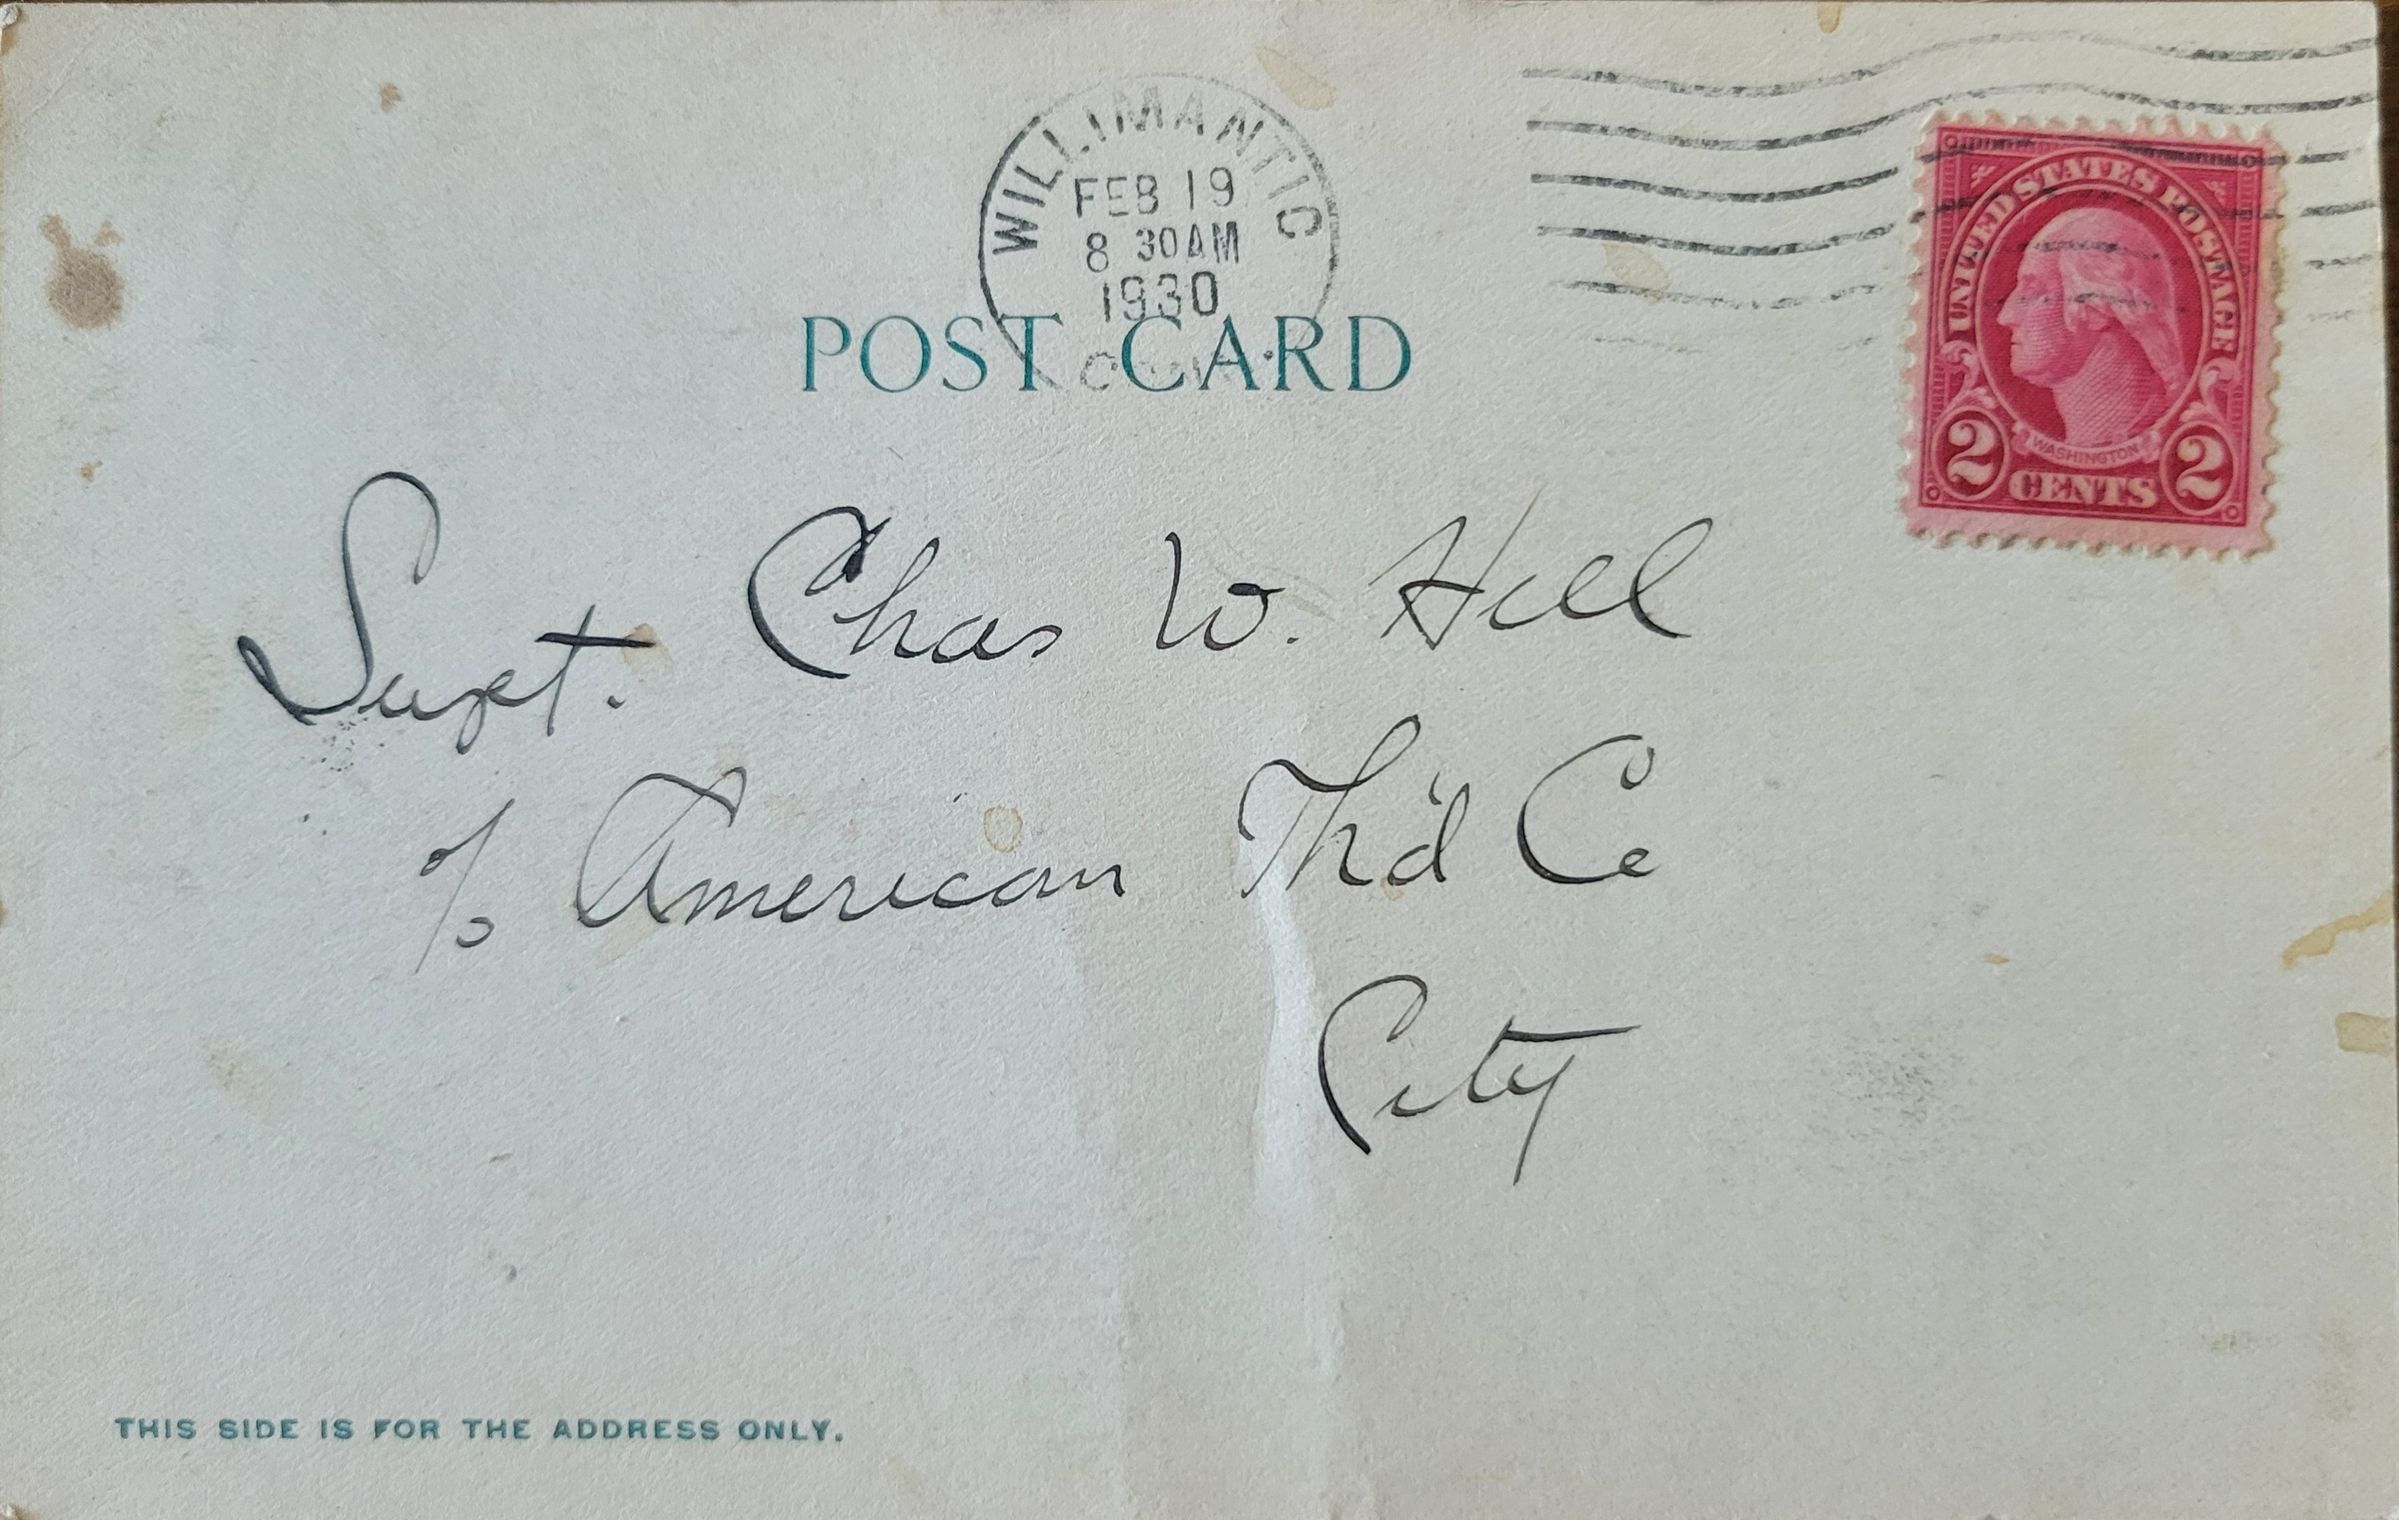 WILLIMANTIC
FEB 19
8 30AM
1930
CONN.
UNITED STATES POSTAGE
WASHINGTON
2 CENTS 2
POST CARD
Supt. Chas W. Hill
c/o American Th'd Co
City
THIS SIDE IS FOR THE ADDRESS ONLY.